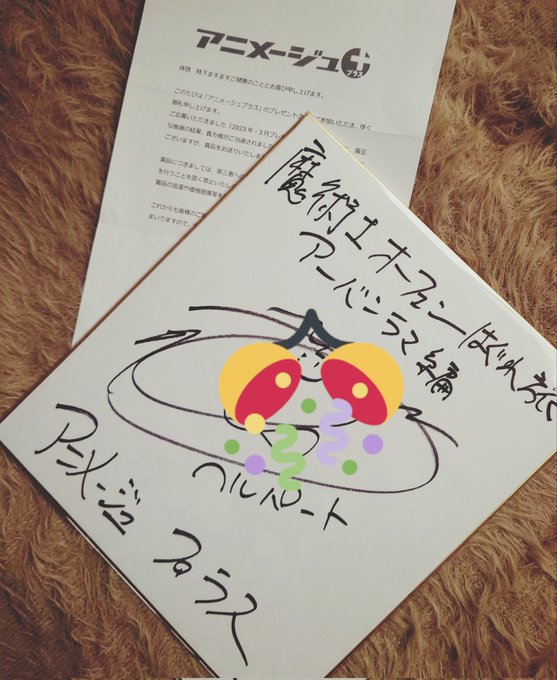 アニメージュプラス
拝啓 時下ますますご健勝のこととお喜び申し上げます。
このたびは「アニメージュプラス」のプレゼント ご参加いただき、厚く
御礼申し上げます。
ご応募いただきました「2023年・3月プレ 厳正
な抽選の結果、貴方様がご当選されました
ございますが、賞品をお送りいたしま
賞品につきましては、第三者への
を行うことを固く禁止いたし
賞品の返還や価格賠償等を
これからも皆様のご
まいりますので、
魔術士オーフェンはぐれ旅
アーバンラマ編
ヘルパート
アニメージュ
プラス